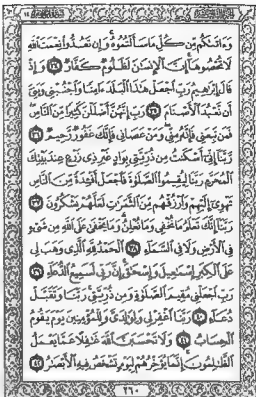 وَءَاتَىٰكُم مِّن كُلِّ مَا سَأَلْتُمُوهُ وَإِن تَعُدُّوا۟ نِعْمَتَ ٱللَّهِ
لَا تُحْصُوهَآ إِنَّ ٱلْإِنسَٰنَ لَظَلُومٌ كَفَّارٌ ٣٤ وَإِذْ
قَالَ إِبْرَٰهِيمُ رَبِّ ٱجْعَلْ هَٰذَا ٱلْبَلَدَ ءَامِنًا وَٱجْنُبْنِى وَبَنِىَّ
أَن نَّعْبُدَ ٱلْأَصْنَامَ ٣٥ رَبِّ إِنَّهُنَّ أَضْلَلْنَ كَثِيرًا مِّنَ ٱلنَّاسِ
فَمَن تَبِعَنِى فَإِنَّهُۥ مِنِّى وَمَنْ عَصَانِى فَإِنَّكَ غَفُورٌ رَّحِيمٌ ٣٦
رَّبَّنَآ إِنِّىٓ أَسْكَنتُ مِن ذُرِّيَّتِى بِوَادٍ غَيْرِ ذِى زَرْعٍ عِندَ بَيْتِكَ
ٱلْمُحَرَّمِ رَبَّنَا لِيُقِيمُوا۟ ٱلصَّلَوٰةَ فَٱجْعَلْ أَفْـِٔدَةً مِّنَ ٱلنَّاسِ
تَهْوِىٓ إِلَيْهِمْ وَٱرْزُقْهُم مِّنَ ٱلثَّمَرَٰتِ لَعَلَّهُمْ يَشْكُرُونَ ٣٧
رَبَّنَآ إِنَّكَ تَعْلَمُ مَا نُخْفِى وَمَا نُعْلِنُ وَمَا يَخْفَىٰ عَلَى ٱللَّهِ مِن شَىْءٍ
فِى ٱلْأَرْضِ وَلَا فِى ٱلسَّمَآءِ ٣٨ ٱلْحَمْدُ لِلَّهِ ٱلَّذِى وَهَبَ لِى
عَلَى ٱلْكِبَرِ إِسْمَٰعِيلَ وَإِسْحَٰقَ إِنَّ رَبِّى لَسَمِيعُ ٱلدُّعَآءِ ٣٩
رَبِّ ٱجْعَلْنِى مُقِيمَ ٱلصَّلَوٰةِ وَمِن ذُرِّيَّتِى رَبَّنَا وَتَقَبَّلْ
دُعَآءِ ٤٠ رَبَّنَا ٱغْفِرْ لِى وَلِوَٰلِدَىَّ وَلِلْمُؤْمِنِينَ يَوْمَ يَقُومُ
ٱلْحِسَابُ ٤١ وَلَا تَحْسَبَنَّ ٱللَّهَ غَٰفِلًا عَمَّا يَعْمَلُ
ٱلظَّٰلِمُونَ إِنَّمَا يُؤَخِّرُهُمْ لِيَوْمٍ تَشْخَصُ فِيهِ ٱلْأَبْصَٰرُ ٤٢
٢٦٠